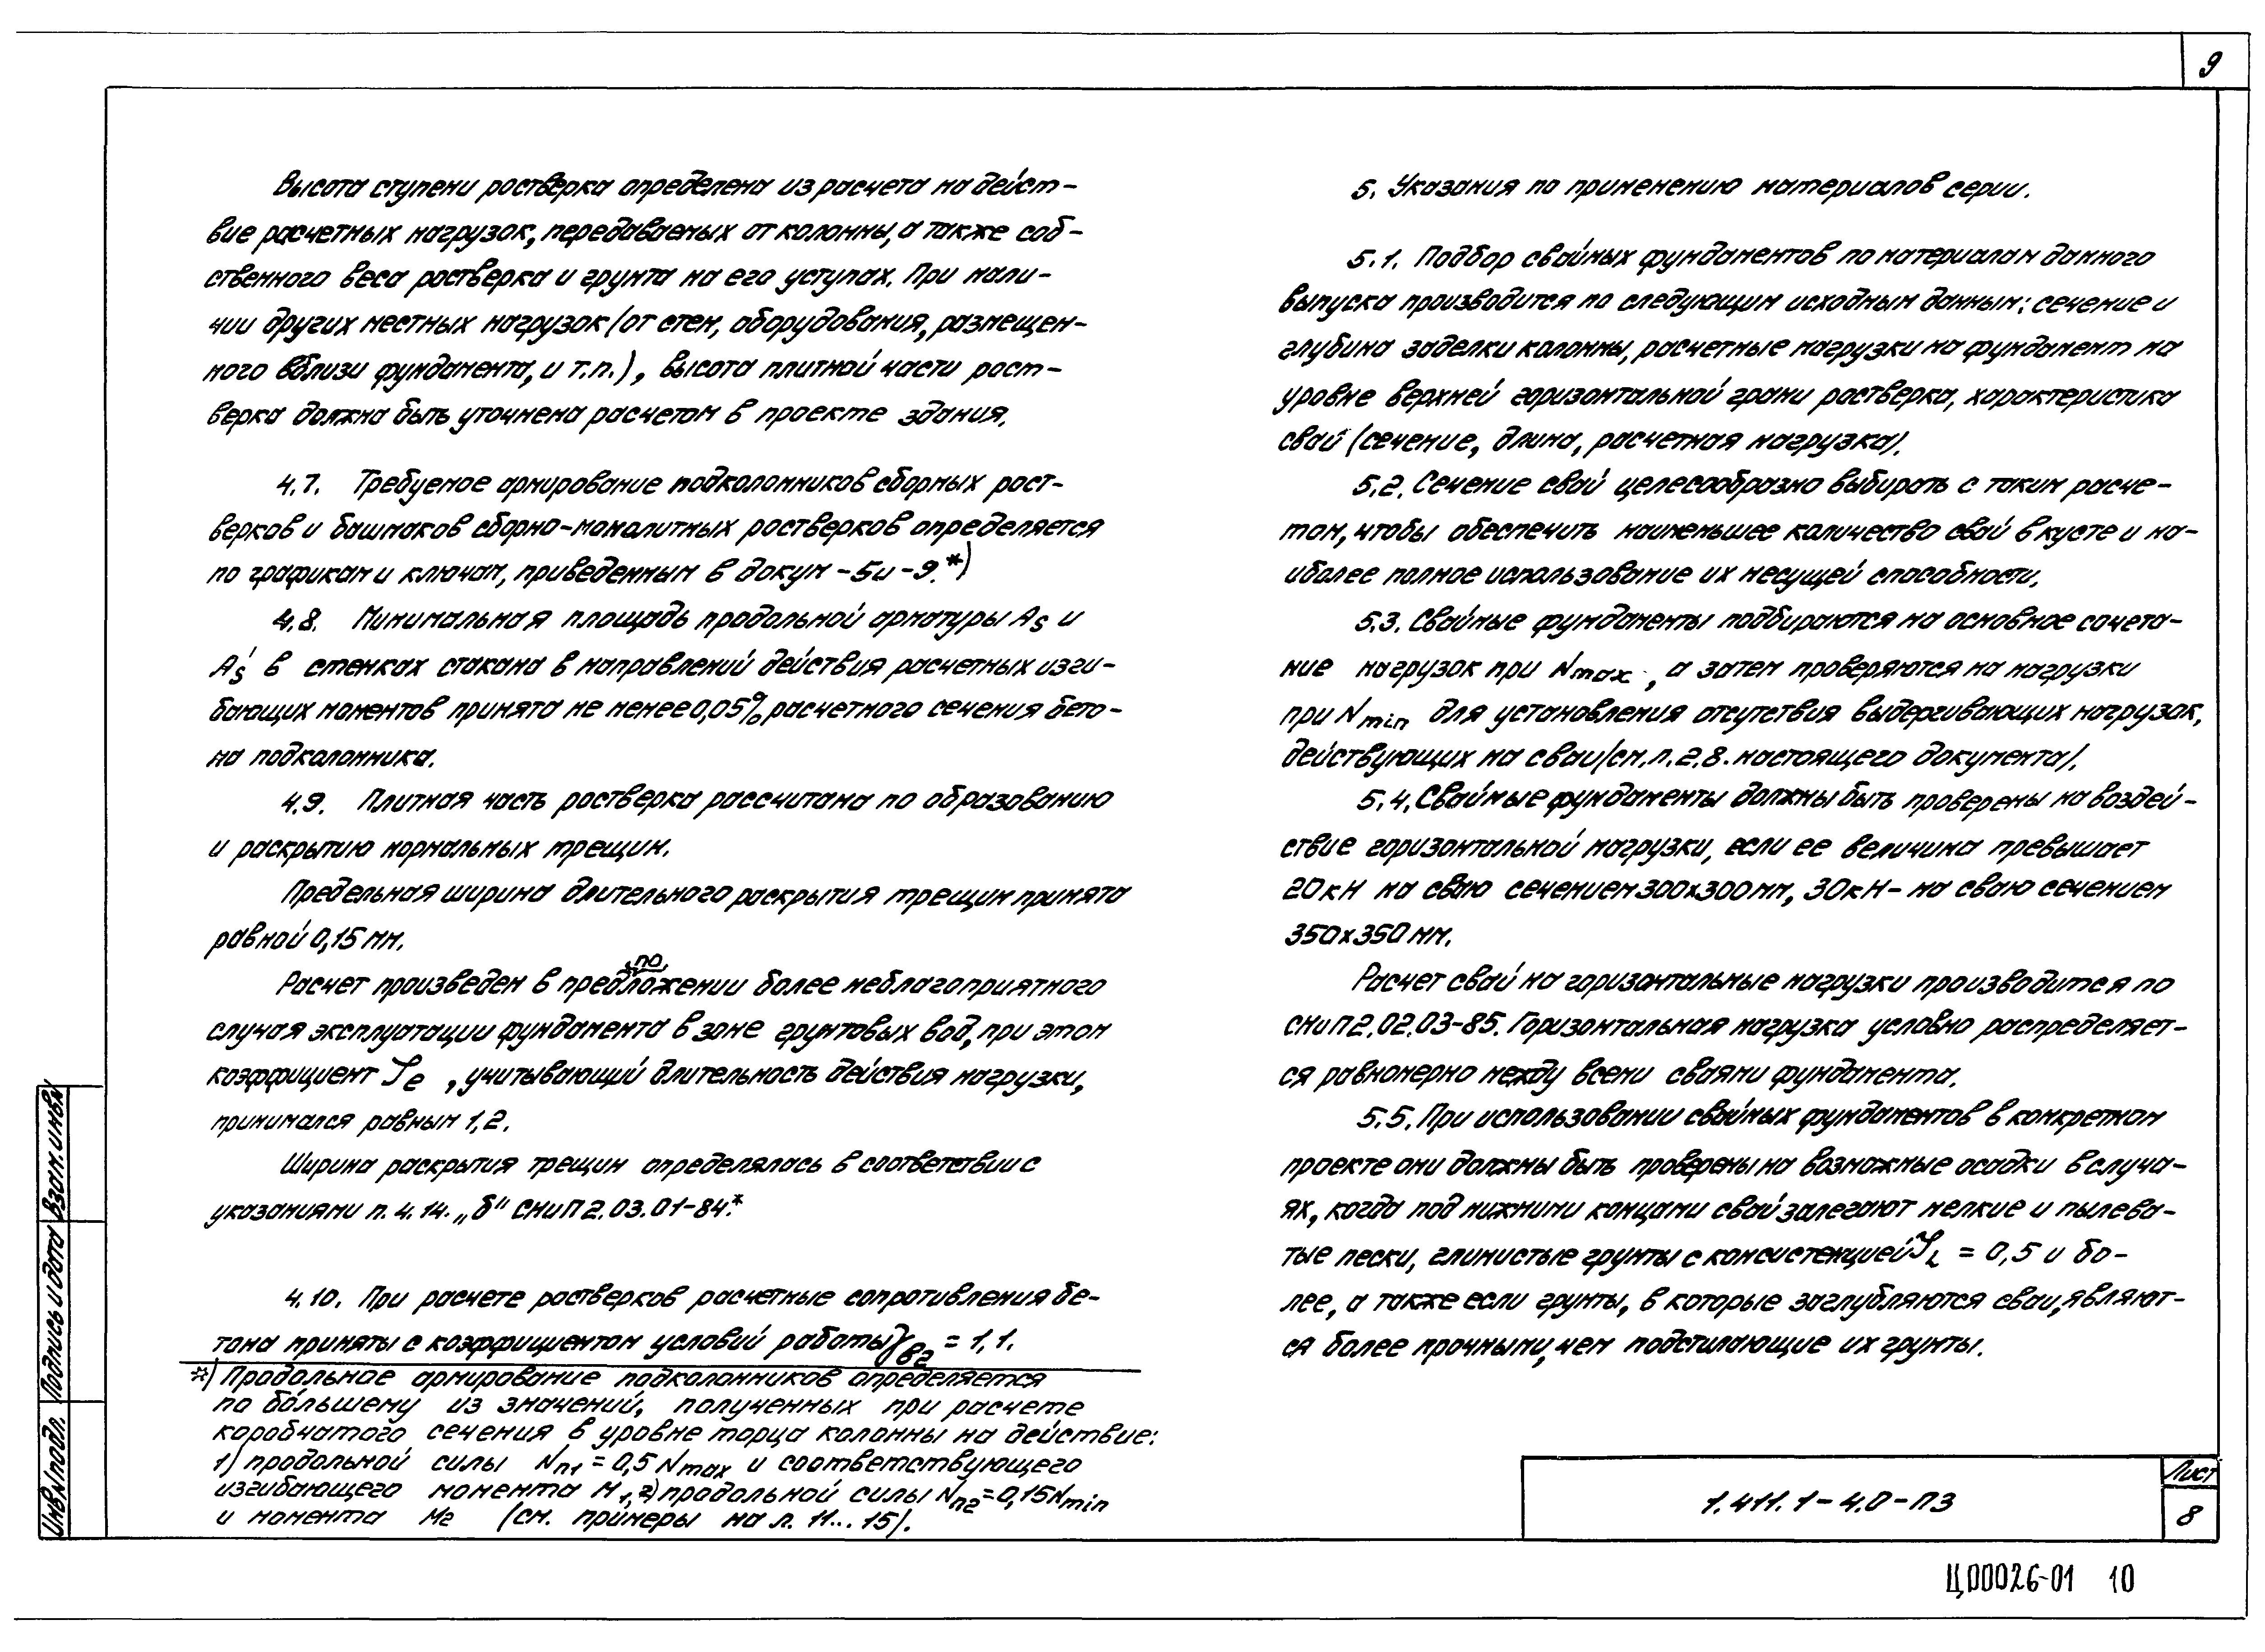 9
Высота ступени ростверка определена из расчета на дейст-
вие расчетных нагрузок, передаваемых от колонны, а также соб-
ственного веса ростверка и грунта на его уступах. При нали-
чии других местных нагрузок (от стен, оборудования, размещен-
ного вблизи фундамента, и т.п.), высота плитной части рост-
верка должна быть уточнена расчетом в проекте здания.
4.7. Требуемое армирование подколонников сборных рост-
верков и башмаков сборно-монолитных ростверков определяется
по графикам и ключам, приведенным в докум -5и -9.*)
4.8. Минимальная площадь продольной арматуры As и
A's в стенках стакана в направлений действия расчетных изги-
бающих моментов принята не менее 0,05% расчетного сечения бето-
на подколонника.
4.9. Плитная часть ростверка рассчитана по образованию
и раскрытию нормальных трещин.
Предельная ширина длительного раскрытия трещин принята
равной 0,15 мм.
по
Расчет произведен в предложении более неблагоприятного
случая эксплуатации фундамента в зоне грунтовых вод, при этом
коэффициент φe, учитывающий длительность действия нагрузки,
принимался равным 1,2.
Ширина раскрытия трещин определялась в соответствии с
указаниями п. 4.14. „б" СНиП 2.03.01-84*.
4.10. При расчете ростверков расчетные сопротивления бе-
тона приняты с коэффициентом условий работы γв2 = 1,1.
*) Продольное армирование подколонников определяется
по бо́льшему из значений, полученных при расчете
коробчатого сечения в уровне торца колонны на действие:
1) продольной силы Nп1 = 0,5 Nmax и соответствующего
изгибающего момента М1, 2) продольной силы Nп2 = 0,15Nmin
и момента М2 (см. примеры на л. 11...15).
5. Указания по применению материалов серии.
5.1. Подбор свайных фундаментов по материалам данного
выпуска производится по следующим исходным данным: сечение и
глубина заделки колонны, расчетные нагрузки на фундамент на
уровне верхней горизонтальной грани ростверка, характеристика
свай (сечение, длина, расчетная нагрузка).
5.2. Сечение свай целесообразно выбирать с таким расче-
том, чтобы обеспечить наименьшее количество свай в кусте и на-
иболее полное использование их несущей способности.
5.3. Свайные фундаменты подбираются на основное сочета-
ние нагрузок при Nmax, а затем проверяются на нагрузки
при Nmin для установления отсутствия выдергивающих нагрузок,
действующих на сваи (см. п. 2.8. настоящего документа).
5.4. Свайные фундаменты должны быть проверены на воздей-
ствие горизонтальной нагрузки, если ее величина превышает
20кН на сваю сечением 300х300мм, 30кН- на сваю сечением
350х350 мм.
Расчет свай на горизонтальные нагрузки производится по
СНиП 2.02.03-85. Горизонтальная нагрузка условно распределяет-
ся равномерно между всеми сваями фундамента.
5.5. При использовании свайных фундаментов в конкретном
проекте они должны быть проверены на возможные осадки в случа-
ях, когда под нижними концами свай залегают мелкие и пылева-
тые пески, глинистые грунты с консистенцией JL = 0,5 и бо-
лее, а также если грунты, в которые заглубляются сваи, являют-
ся более прочными, чем подстилающие их грунты.
Инв№подл. Подпись и дата Взам.инв№
1.411.1-4.0-ПЗ
Лист
8
Ц00026-01 10